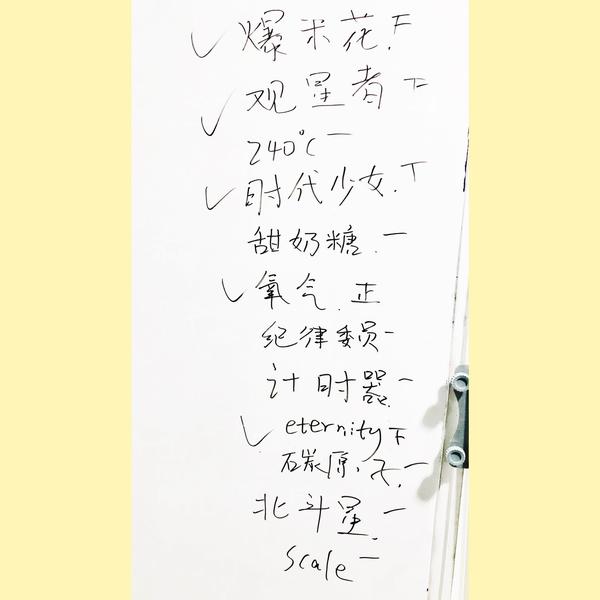 ✓ 爆米花 F
✓ 观星者 T
240℃ 一
✓ 时代少女. T
甜奶糖. 一
✓ 氧气. 正
纪律委员 一
计时器 一
✓ eternity 下
碳原子. 一
北斗星. 一
Scale 一